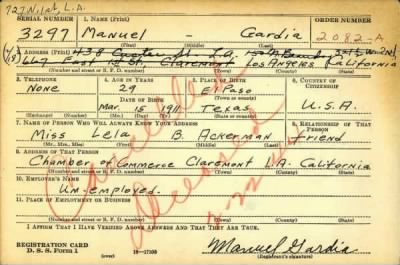 727 N. Lat, L.A.
SERIAL NUMBER 1. NAME (Print) ORDER NUMBER
3297 Manuel - Gardia 2082-A
2. ADDRESS (Print)
667 East 1st St. Claremont Los Angeles California
(Number and street or R. F. D. number) (Town) (County) (State)
3. TELEPHONE 4. AGE IN YEARS 5. PLACE OF BIRTH 6. COUNTRY OF CITIZENSHIP
None 29 El Paso
DATE OF BIRTH
Mar. 15 1911 Texas U.S.A.
(Mo.) (Day) (Yr.) (State or country)
7. NAME OF PERSON WHO WILL ALWAYS KNOW YOUR ADDRESS 8. RELATIONSHIP OF THAT PERSON
Miss Lela B Ackerman friend
(Mr., Mrs., Miss) (First) (Middle) (Last)
9. ADDRESS OF THAT PERSON
Chamber of Commerce Claremont L.A. California
(Number and street or R. F. D. number) (Town) (County) (State)
10. EMPLOYER'S NAME
Un-employed.
11. PLACE OF EMPLOYMENT OR BUSINESS
(Number and street or R. F. D. number) (Town) (County) (State)
I AFFIRM THAT I HAVE VERIFIED ABOVE ANSWERS AND THAT THEY ARE TRUE.
REGISTRATION CARD
D. S. S. Form 1 16-17105 Manuel Gardia
(Registrant's signature)
Cancelled
deceased